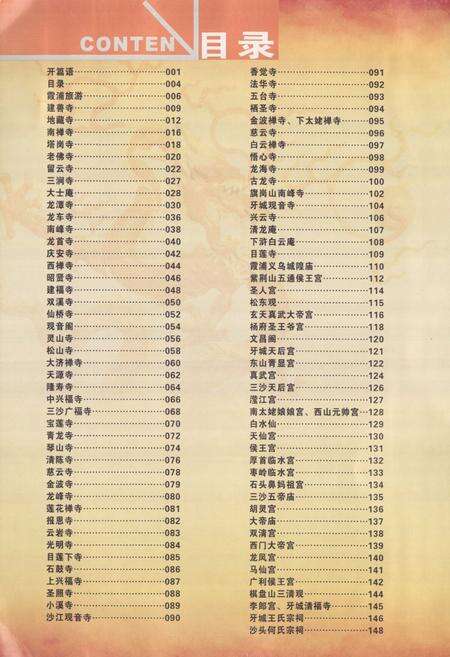 CONTEN 目录
开篇语 001
目录 004
霞浦旅游 006
建善寺 009
地藏寺 012
南禅寺 016
塔岗寺 018
老佛寺 020
留云寺 022
三洞寺 027
大士庵 028
龙潭寺 030
龙车寺 036
南峰寺 038
龙首寺 040
庆安寺 042
西禅寺 044
昭贤寺 046
建福寺 048
双溪寺 050
仙桥寺 052
观音阁 054
灵山寺 056
松山寺 058
大济禅寺 060
天源寺 062
隆寿寺 064
中兴福寺 066
三沙广福寺 068
宝莲寺 070
青龙寺 072
琴山寺 074
清陈寺 076
慈云寺 078
金波寺 079
龙峰寺 080
莲花禅寺 081
报恩寺 082
云岩寺 083
光明寺 084
目莲下寺 085
石鼓寺 086
上兴福寺 087
圣照寺 088
小溪寺 089
沙江观音寺 090
香觉寺 091
法华寺 092
五台寺 093
栖圣寺 094
金波禅寺、下太姥禅寺 095
慈云寺 096
白云禅寺 097
悟心寺 098
龙海寺 099
古龙寺 100
旗岗山南峰寺 102
牙城观音寺 104
兴云寺 106
清龙庵 107
下浒白云庵 108
目莲寺 109
霞浦义乌城隍庙 110
紫荆山五通侯王宫 112
圣人宫 114
松东观 115
玄天真武大帝宫 116
杨府圣王爷宫 118
文昌阁 120
牙城天后宫 121
东山青显宫 122
真武宫 124
三沙天后宫 126
滢江宫 127
南太姥娘娘宫、西山元帅宫 128
白水仙 129
天仙宫 130
侯王宫 131
厚首临水宫 132
枣岭临水宫 133
石头鼻妈祖宫 134
三沙五帝庙 135
胡灵宫 136
大帝庙 137
双清宫 138
西门大帝宫 139
龙凤宫 140
马仙宫 141
广利侯王宫 142
棋盘山三清观 144
李郎宫、牙城清福寺 145
牙城王氏宗祠 146
沙头何氏宗祠 148